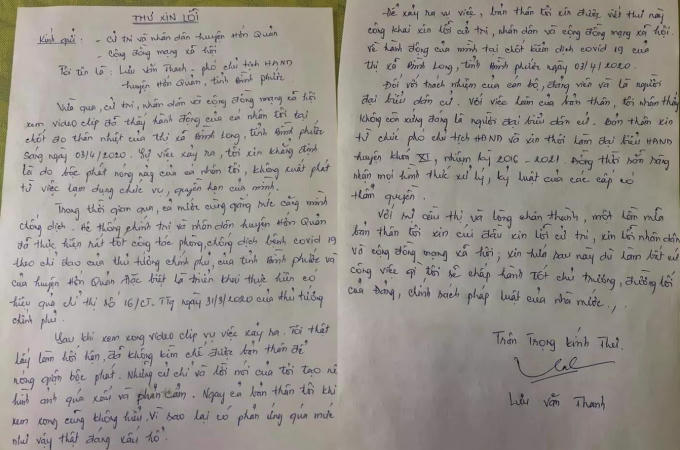 THƯ XIN LỖI
Kính gửi: - Cử tri và nhân dân huyện Hớn Quản
- Cộng đồng mạng xã hội
Tôi tên là: Lưu Văn Thanh - phó chủ tịch HĐND
huyện Hớn Quản, tỉnh Bình Phước
Vừa qua, cử tri, nhân dân và cộng đồng mạng xã hội
xem video clip đã thấy hành động của cá nhân tôi tại
chốt đo thân nhiệt của thị xã Bình Long, tỉnh Bình Phước
sáng ngày 03/4/2020. Sự việc xảy ra, tôi xin khẳng định
là do bộc phát nóng nảy của cá nhân tôi, không xuất phát
từ việc lạm dụng chức vụ, quyền hạn của mình.
Trong thời gian qua, cả nước cùng gắng sức cùng mình
chống dịch. Hệ thống chính trị và nhân dân huyện Hớn Quản
đã thực hiện rất tốt công tác phòng, chống dịch bệnh covid 19
theo chỉ đạo của thủ tướng chính phủ, của tỉnh Bình Phước và
của huyện Hớn Quản. Đặc biệt là triển khai thực hiện có
hiệu quả chỉ thị số 16/CT. TTg ngày 31/3/2020 của thủ tướng
chính phủ.
Sau khi xem xong video clip vụ việc xảy ra. Tôi thật
lấy làm hối hận, đã không kìm chế được bản thân để
nóng giận bộc phát. Những cử chỉ và lời nói của tôi tạo nê
hình ảnh quá xấu và phản cảm. Ngay cả bản thân tôi khi
xem xong cũng không hiểu, vì sao lại có phản ứng quá mức
như vậy thật đáng xấu hổ.
Để xảy ra vụ việc, bản thân tôi xin được viết thư này
công khai xin lỗi cử tri, nhân dân và cộng đồng mạng xã hội.
Về hành động của mình tại chốt kiểm dịch covid 19 của
thị xã Bình Long, tỉnh Bình Phước ngày 03/4/2020.
Đối với trách nhiệm của cán bộ, đảng viên và là người
đại biểu dân cử. Với việc làm của bản thân, tôi nhận thấy
không còn xứng đáng là người đại biểu dân cử. Bản thân xin
từ chức phó chủ tịch HĐND và xin thôi làm đại biểu HĐND
huyện khóa XI, nhiệm kỳ 2016 - 2021. Đồng thời sẵn sàng
nhận mọi hình thức xử lý, kỷ luật của các cấp có
thẩm quyền.
Với sự cầu thị và lòng chân thành, một lần nữa
bản thân tôi xin cúi đầu xin lỗi cử tri, xin lỗi nhân dân
và cộng đồng mạng xã hội, xin hứa sau này dù làm bất cứ
công việc gì tôi sẽ chấp hành tốt chủ trương, đường lối
của Đảng, chính sách pháp luật của nhà nước.
Trân Trọng kính Thư.
Lưu Văn Thanh